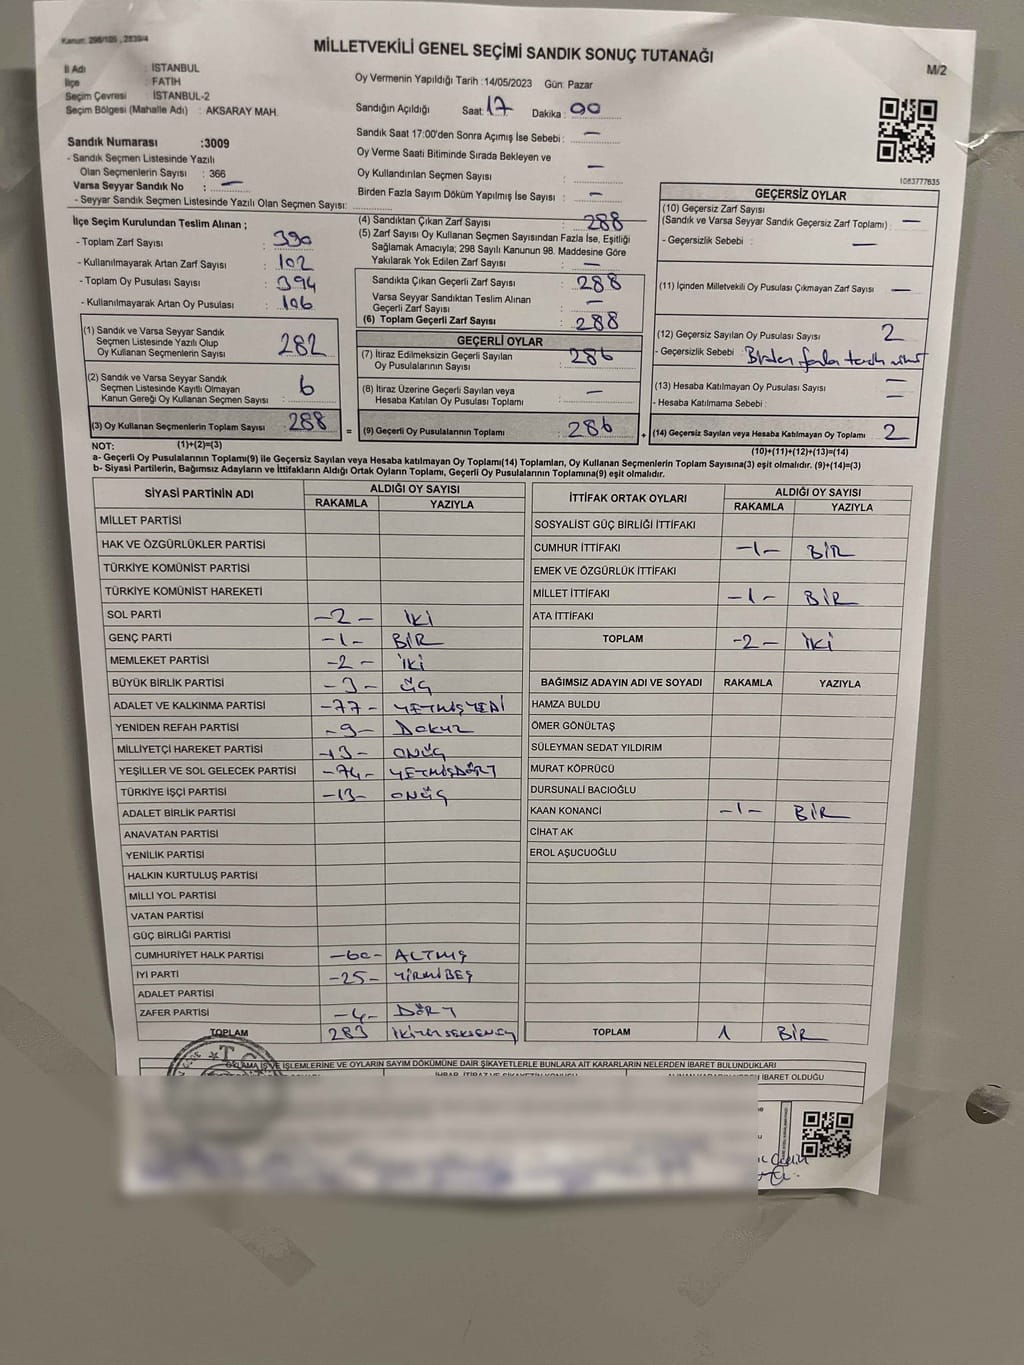 Kanun: 298/105 , 2839/4
MİLLETVEKİLİ GENEL SEÇİMİ SANDIK SONUÇ TUTANAĞI
M/2
İl Adı : İSTANBUL
İlçe : FATİH
Seçim Çevresi : İSTANBUL-2
Seçim Bölgesi (Mahalle Adı) : AKSARAY MAH.
Oy Vermenin Yapıldığı Tarih : 14/05/2023 Gün: Pazar
Sandığın Açıldığı Saat: 17 Dakika : 00
Sandık Saat 17:00'den Sonra Açımış İse Sebebi : —
Oy Verme Saati Bitiminde Sırada Bekleyen ve
Oy Kullandırılan Seçmen Sayısı : —
Birden Fazla Sayım Döküm Yapılmış İse Sayısı : —
1083777635
Sandık Numarası : 3009
- Sandık Seçmen Listesinde Yazılı
Olan Seçmenlerin Sayısı : 366
Varsa Seyyar Sandık No : —
- Seyyar Sandık Seçmen Listesinde Yazılı Olan Seçmen Sayısı:
İlçe Seçim Kurulundan Teslim Alınan ;
- Toplam Zarf Sayısı : 390
- Kullanılmayarak Artan Zarf Sayısı : 102
- Toplam Oy Pusulası Sayısı : 394
- Kullanılmayarak Artan Oy Pusulası : 106
(1) Sandık ve Varsa Seyyar Sandık
Seçmen Listesinde Yazılı Olup
Oy Kullanan Seçmenlerin Sayısı : 282
(2) Sandık ve Varsa Seyyar Sandık
Seçmen Listesinde Kayıtlı Olmayan
Kanun Gereği Oy Kullanan Seçmen Sayısı : 6
(3) Oy Kullanan Seçmenlerin Toplam Sayısı : 288
(4) Sandıktan Çıkan Zarf Sayısı : 288
(5) Zarf Sayısı Oy Kullanan Seçmen Sayısından Fazla İse, Eşitliği
Sağlamak Amacıyla; 298 Sayılı Kanunun 98. Maddesine Göre
Yakılarak Yok Edilen Zarf Sayısı : —
Sandıkta Çıkan Geçerli Zarf Sayısı : 288
Varsa Seyyar Sandıktan Teslim Alınan
Geçerli Zarf Sayısı : —
(6) Toplam Geçerli Zarf Sayısı : 288
GEÇERLİ OYLAR
(7) İtiraz Edilmeksizin Geçerli Sayılan
Oy Pusulalarının Sayısı : 286
(8) İtiraz Üzerine Geçerli Sayılan veya
Hesaba Katılan Oy Pusulası Toplamı : —
= (9) Geçerli Oy Pusulalarının Toplamı : 286
GEÇERSİZ OYLAR
(10) Geçersiz Zarf Sayısı
(Sandık ve Varsa Seyyar Sandık Geçersiz Zarf Toplamı) : —
- Geçersizlik Sebebi : —
(11) İçinden Milletvekili Oy Pusulası Çıkmayan Zarf Sayısı : —
(12) Geçersiz Sayılan Oy Pusulası Sayısı : 2
- Geçersizlik Sebebi : Birden fazla tercih
(13) Hesaba Katılmayan Oy Pusulası Sayısı : —
- Hesaba Katılmama Sebebi : —
+ (14) Geçersiz Sayılan veya Hesaba Katılmayan Oy Toplamı : 2
NOT: (1)+(2)=(3)
(10)+(11)+(12)+(13)=(14)
a- Geçerli Oy Pusulalarının Toplamı(9) ile Geçersiz Sayılan veya Hesaba katılmayan Oy Toplamı(14) Toplamları, Oy Kullanan Seçmenlerin Toplam Sayısına(3) eşit olmalıdır. (9)+(14)=(3)
b- Siyasi Partilerin, Bağımsız Adayların ve İttifakların Aldığı Ortak Oyların Toplamı, Geçerli Oy Pusulalarının Toplamına(9) eşit olmalıdır.
SİYASİ PARTİNİN ADI ALDIĞI OY SAYISI
RAKAMLA YAZIYLA
MİLLET PARTİSİ
HAK VE ÖZGÜRLÜKLER PARTİSİ
TÜRKİYE KOMÜNİST PARTİSİ
TÜRKİYE KOMÜNİST HAREKETİ
SOL PARTİ -2- İKİ
GENÇ PARTİ -1- BİR
MEMLEKET PARTİSİ -2- İKİ
BÜYÜK BİRLİK PARTİSİ -3- ÜÇ
ADALET VE KALKINMA PARTİSİ -77- YETMİŞYEDİ
YENİDEN REFAH PARTİSİ -9- DOKUZ
MİLLİYETÇİ HAREKET PARTİSİ -13- ONÜÇ
YEŞİLLER VE SOL GELECEK PARTİSİ -74- YETMİŞDÖRT
TÜRKİYE İŞÇİ PARTİSİ -13- ONÜÇ
ADALET BİRLİK PARTİSİ
ANAVATAN PARTİSİ
YENİLİK PARTİSİ
HALKIN KURTULUŞ PARTİSİ
MİLLİ YOL PARTİSİ
VATAN PARTİSİ
GÜÇ BİRLİĞİ PARTİSİ
CUMHURİYET HALK PARTİSİ -60- ALTMIŞ
İYİ PARTİ -25- YİRMİBEŞ
ADALET PARTİSİ
ZAFER PARTİSİ -4- DÖRT
TOPLAM 283
İTTİFAK ORTAK OYLARI ALDIĞI OY SAYISI
RAKAMLA YAZIYLA
SOSYALİST GÜÇ BİRLİĞİ İTTİFAKI
CUMHUR İTTİFAKI -1- BİR
EMEK VE ÖZGÜRLÜK İTTİFAKI
MİLLET İTTİFAKI -1- BİR
ATA İTTİFAKI
TOPLAM -2- İKİ
BAĞIMSIZ ADAYIN ADI VE SOYADI RAKAMLA YAZIYLA
HAMZA BULDU
ÖMER GÖNÜLTAŞ
SÜLEYMAN SEDAT YILDIRIM
MURAT KÖPRÜCÜ
DURSUNALİ BACIOĞLU
KAAN KONANCİ -1- BİR
CİHAT AK
EROL AŞUCUOĞLU
TOPLAM 1 BİR
İŞLEMLERİNE VE OYLARIN SAYIM DÖKÜMÜNE DAİR ŞİKAYETLERLE BUNLARA AİT KARARLARIN NELERDEN İBARET BULUNDUKLARI
İBARET OLDUĞU